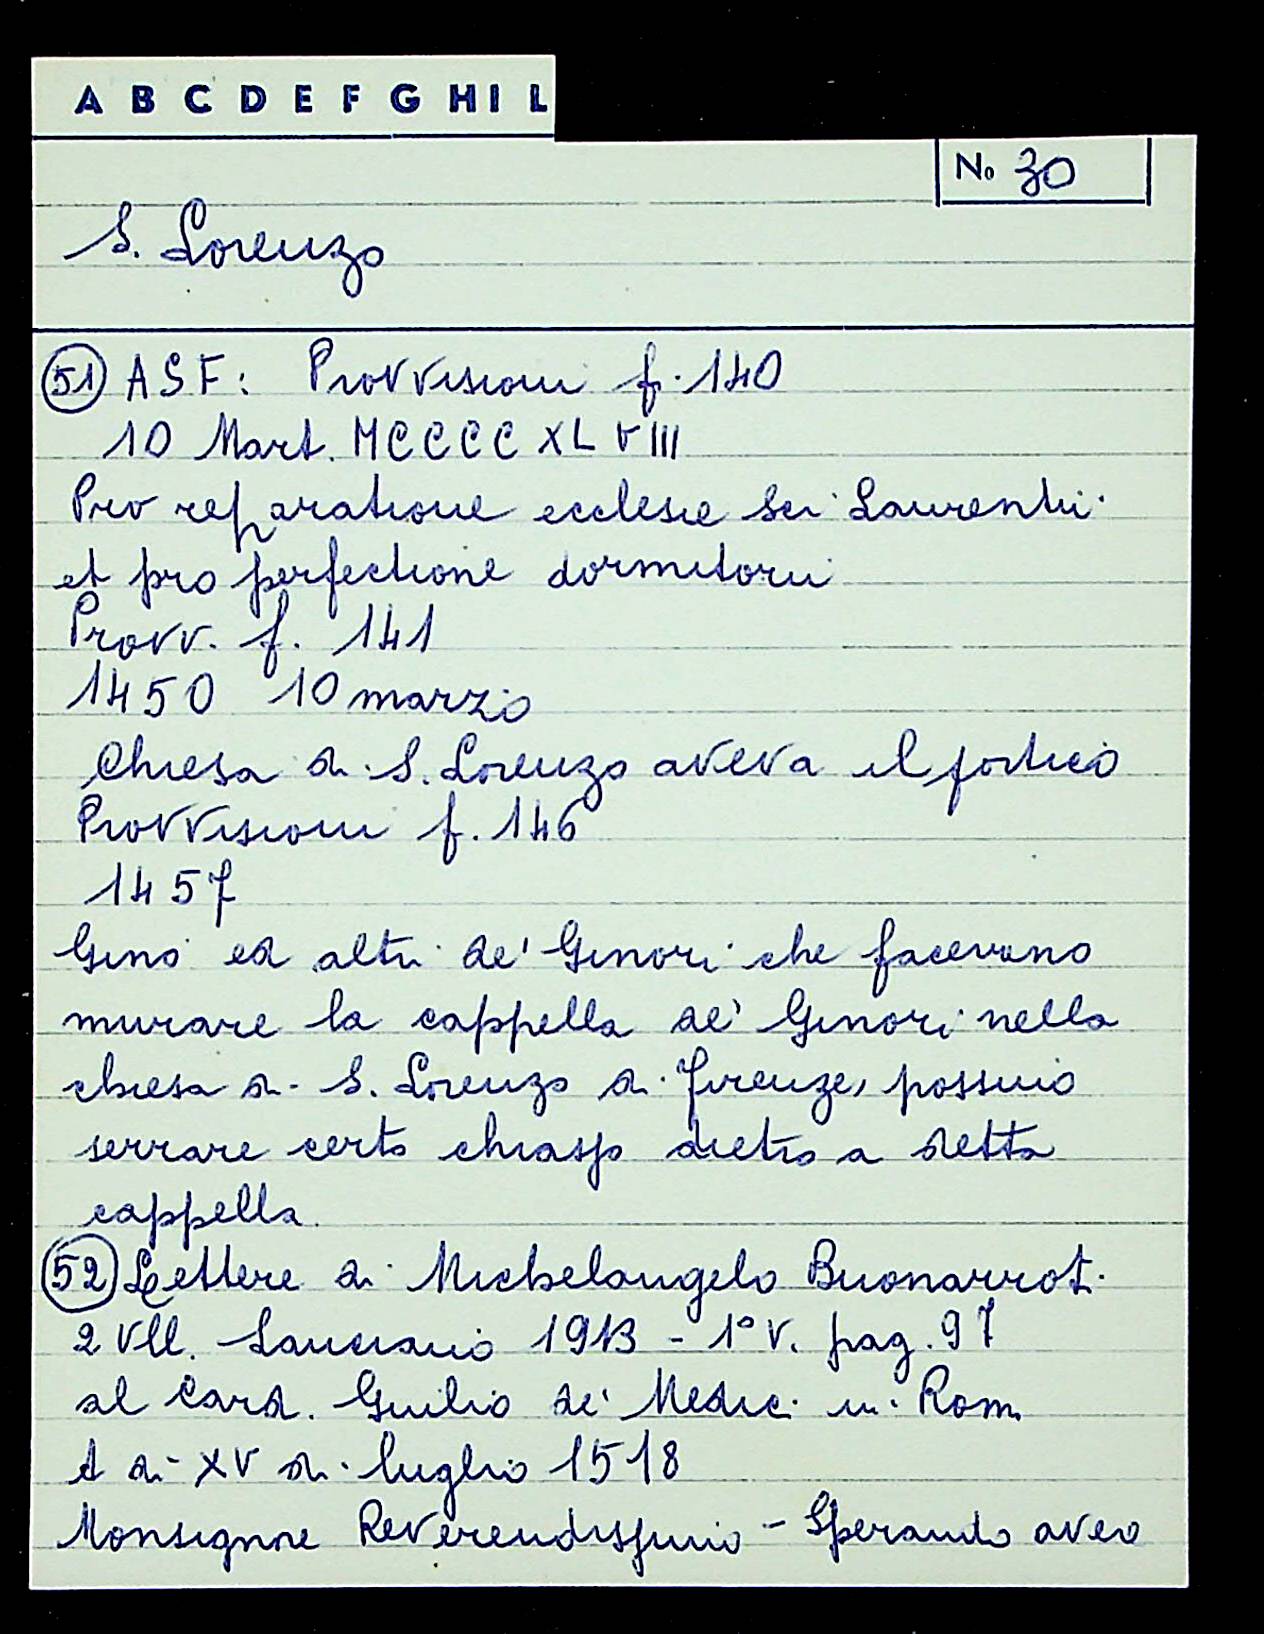 A B C D E F G H I L
No 30
S. Lorenzo
51 ASF: Provvisioni f. 140
10 Mart. MCCCCXLVIII
Pro reparatione ecclesie Sci Laurentii
et pro perfectione dormitorii
Provv. f. 141
1450 10 marzo
Chiesa di S. Lorenzo aveva il portico
Provvisioni f. 146
1457
Gino ed altri de' Ginori che facevano
murare la cappella de' Ginori nella
chiesa di S. Lorenzo di Firenze, possino
serrare certo chiasso dietro a detta
cappella.
52 Lettere di Michelangelo Buonarroti
2 Vll. Lanciano 1913 - 1° V. pag. 97
al Card. Giulio de' Medici in Rom
A di XV di luglio 1518
Monsignore Reverendissimo - Sperando aveo